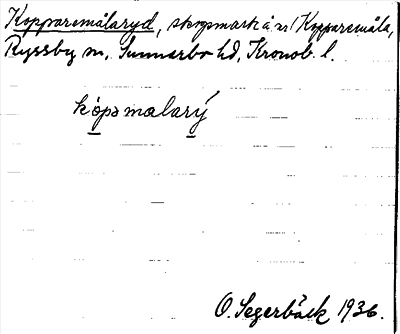 Kopparemålaryd, skogsmark å n. Kopparemåla,
Ryssby sn, Sunnerbo hd, Kronob. l.
kòpəmalarý
O. Segerbäck 1936.